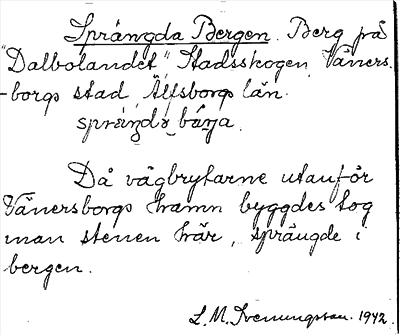 Sprängda Bergen. Berg på
"Dalbolandet" Stadsskogen Väners-
-borgs stad, Älfsborgs län.
Då vågbrytarne utanför
Vänersborgs hamn byggdes tog
man stenen här, sprängde i
bergen.
L. M. Svenungsson. 1942.